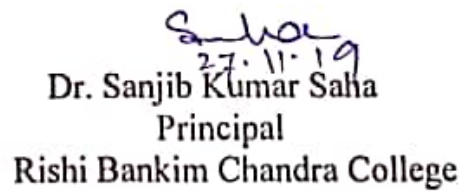 27.11.19
Dr. Sanjib Kumar Saha
Principal
Rishi Bankim Chandra College